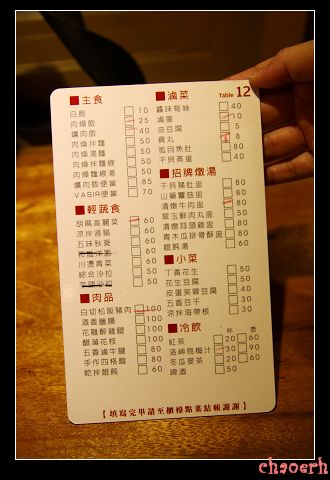 Table 12
■主食
白飯 10
肉燥飯 25
爌肉飯 40
肉燥拌麵 50
肉燥湯麵 50
肉燥拌麵線 50
肉燥麵線湯 50
爌肉飯便當 85
VASIR便當 70
■輕蔬食
胡麻高麗菜 60
涼拌過貓 60
五味秋葵 60
川燙青菜 50
綜合沙拉 50
50
■肉品
白切松阪豬肉 100
酒香臘腸 100
花雕醉雞腿 100
醋溜花枝 100
五香滷牛腱 80
手作四格腸 80
乾拌餛飩 60
■滷菜
醬味筍絲 40
滷蛋 10
油豆腐 5
貢丸 8
虱目魚肚 80
干貝蒸蛋 40
■招牌燉湯
干貝豬肚盅 80
山藥蘑菇盅 80
清燉牛肉盅 80
翠玉鮮肉丸盅 50
清燉蒜頭雞盅 80
青木瓜排骨酥盅 80
餛飩湯 60
■小菜
丁香花生 50
花生豆腐 50
皮蛋芙蓉豆腐 40
五香豆干 30
涼拌海帶根 30
■冷飲 杯 壺
紅茶 20 60
洛神烏梅汁 30 90
冬瓜麥茶 20 60
啤酒 50
【填寫完畢請至櫃檯點菜結帳謝謝】
chaoerh